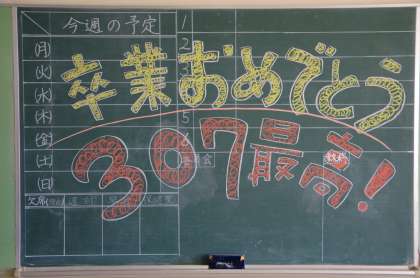 今週の予定
1
(月)
2
(火)
卒業おめでとう
(水)
(木)
5
(金)
6
(土)
307最高!
(日)
欠席